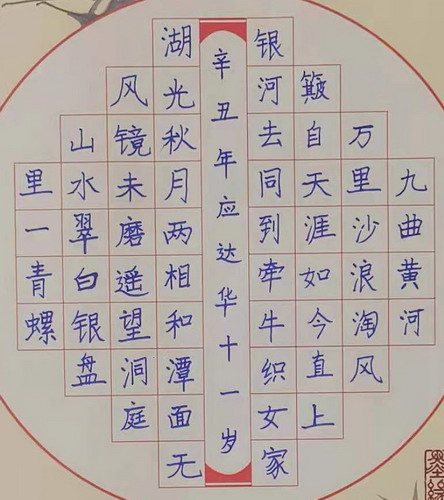 九曲黄河
万里沙浪淘风
簸自天涯如今直上
银河去同到牵牛织女家
辛丑年应达华十一岁
湖光秋月两相和潭面无
风镜未磨遥望洞庭
山水翠白银盘
里一青螺